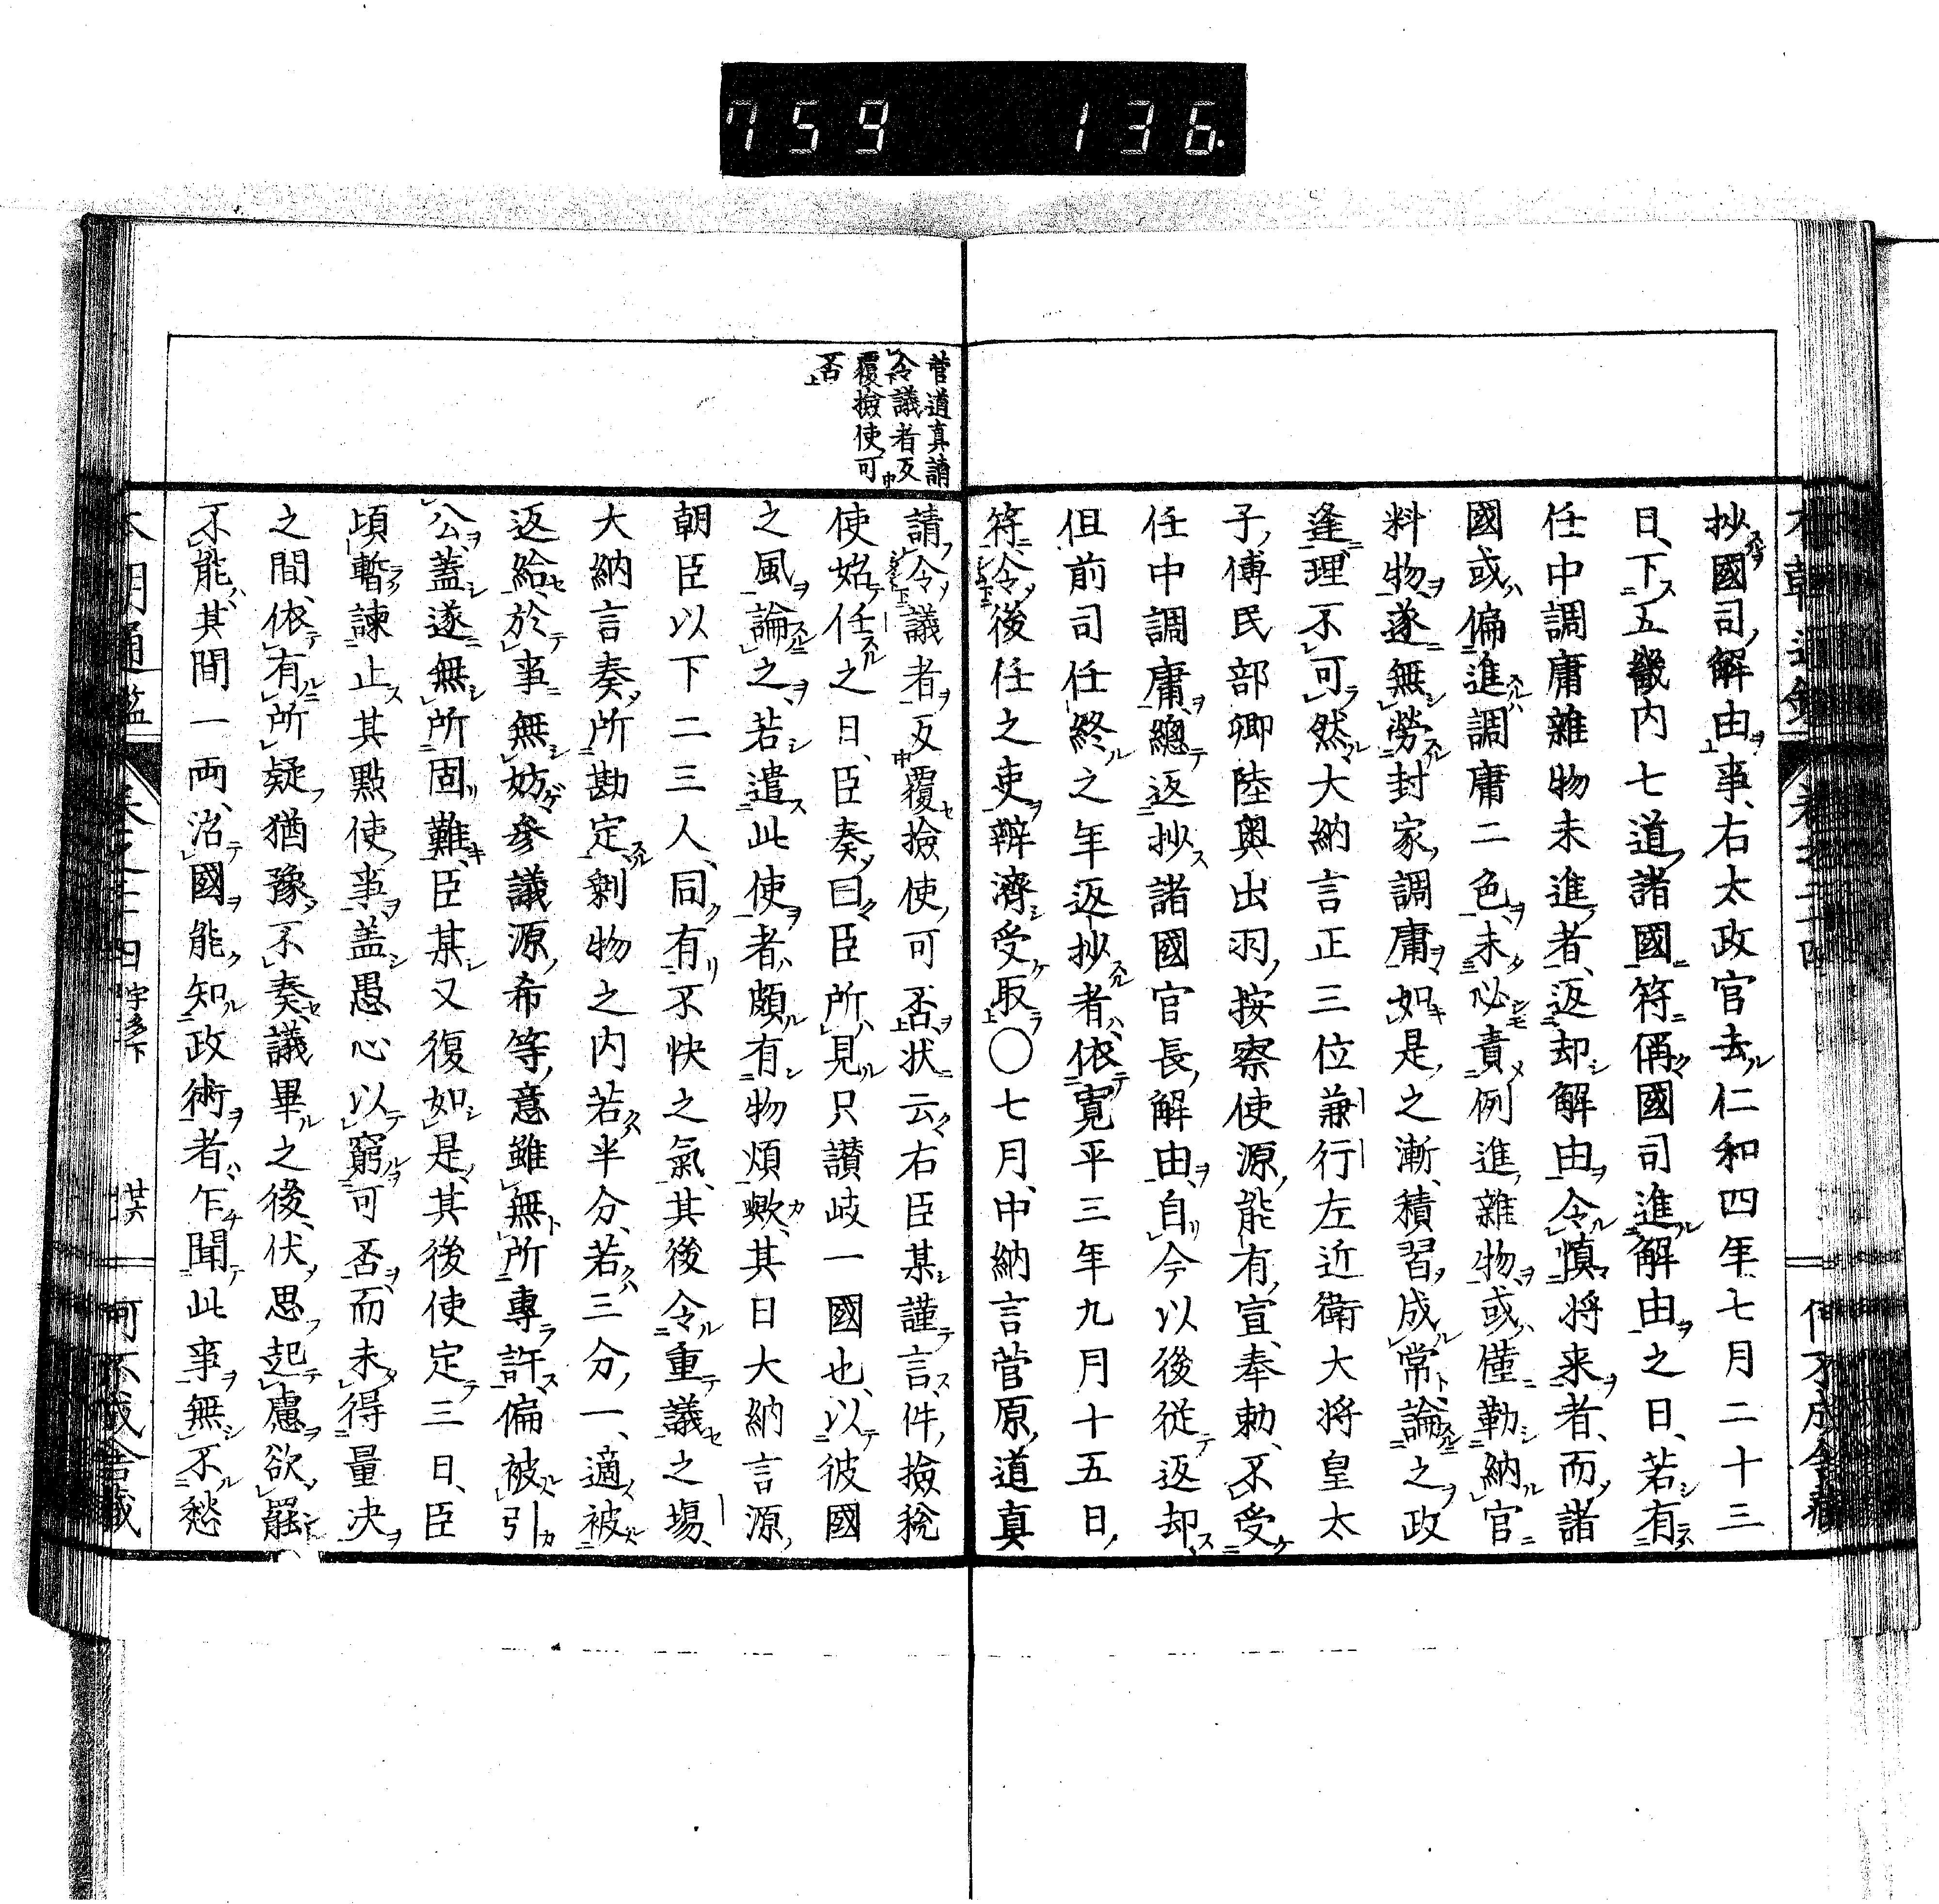 759 136.
抄國司解由事、右太政官去仁和四年七月二十三
日、下五畿内七道諸國符偁國司進解由之日、若有
任中調庸雜物未進者、返却解由令慎將来者、而諸
國或偏進調庸二色未必責例進雜物或僅勒納官
料物遂無勞封家調庸如是之漸積習成常論之政
逢理不可然大納言正三位兼行左近衛大将皇太
子傅民部卿陸奥出羽按察使源能有宣奉勅不受
任中調庸總返抄諸國官長解由自今以後従返却
但前司任終之年返抄者依寛平三年九月十五日
符令後任之吏辨濟受取〇七月、中納言菅原道真
菅道真請
令議者反
覆撿使可
否
請令議者反覆撿使可否状云右臣某謹言件撿税
使始任之日、臣奏曰臣所見只讃岐一國也、以彼國
之風論之若遣此使者頗有物煩歟其日大納言源
朝臣以下二三人、同有不快之氣、其後令重議之場、
大納言奏所勘定剰物之内若半分、若三分一、適被
返給於事無妨参議源希等意雖無所專許偏被引
公蓋遂無所固難臣某又復如是其後使定三日、臣
頃暫諫止其點使事盖愚心以窮可否而未得量决
之間、依有所疑猶豫不奏議畢之後、伏思起慮欲罷
不能其間一両治國能知政術者乍聞此事無不愁